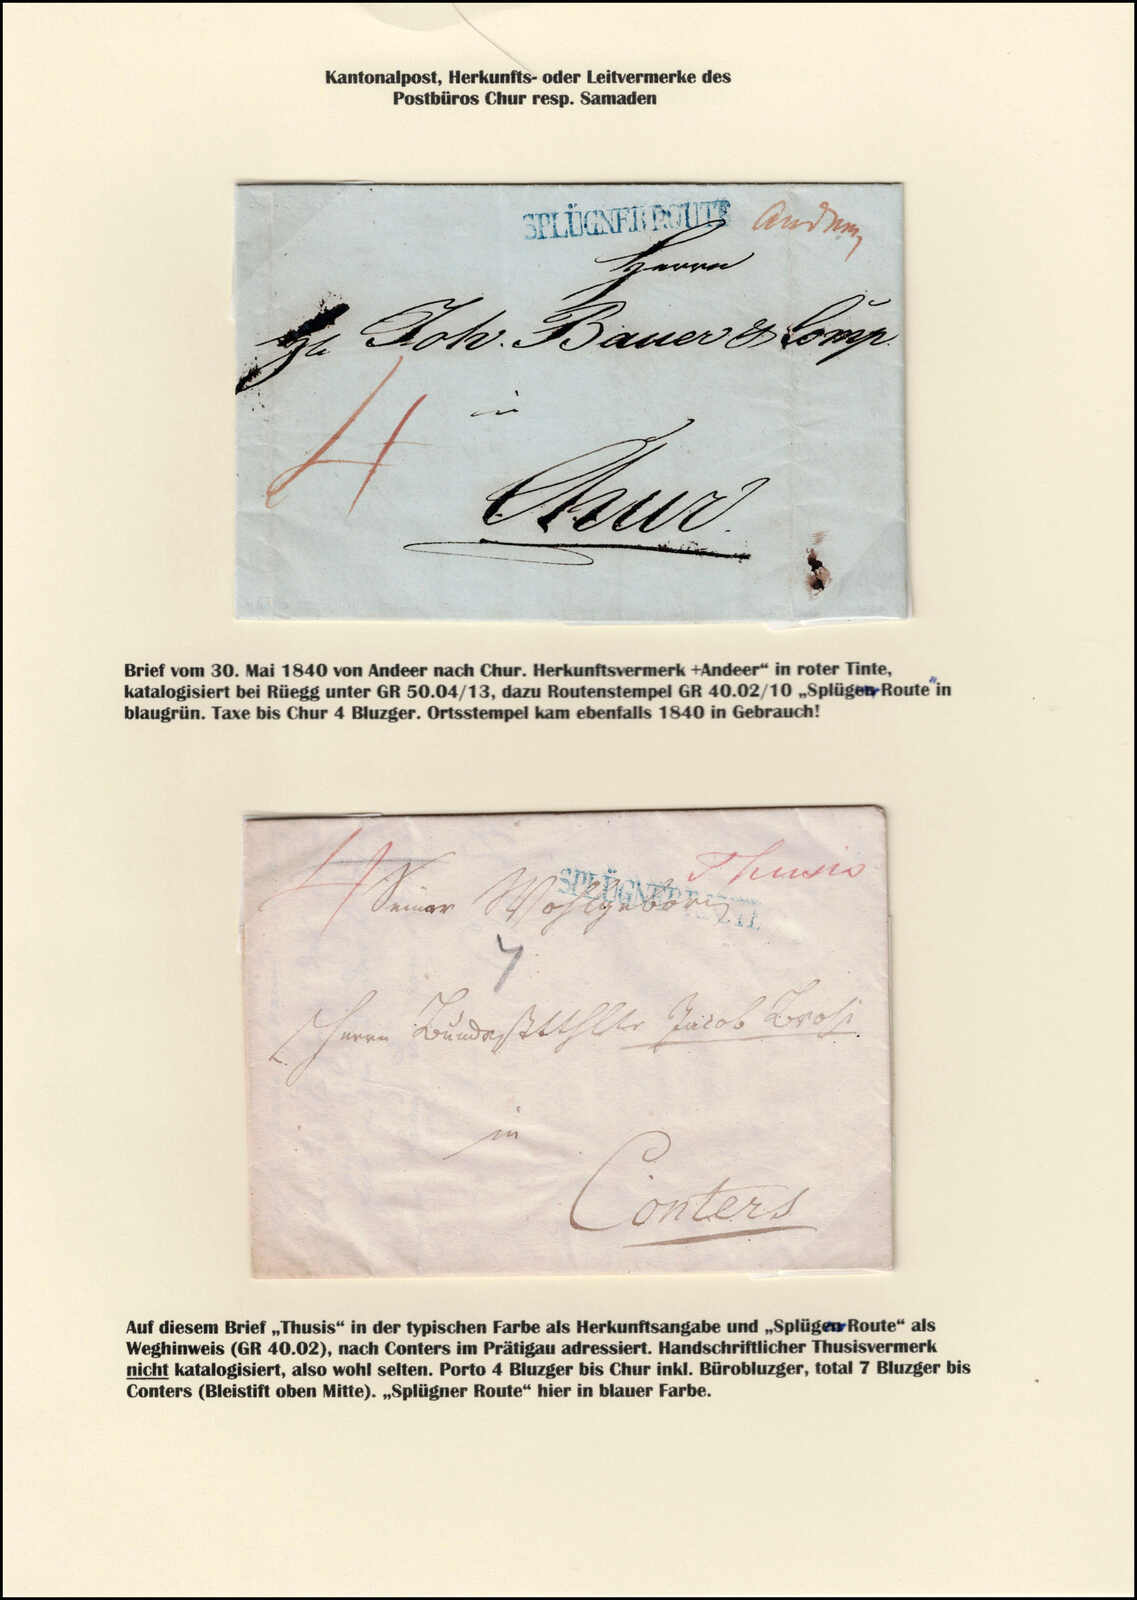 Kantonalpost, Herkunfts- oder Leitvermerke des
Postbüros Chur resp. Samaden
SPLÜGNER ROUTE
Andeer
Herrn
Joh. Bauer & Comp.
4
in
Chur.
Brief vom 30. Mai 1840 von Andeer nach Chur. Herkunftsvermerk +Andeer“ in roter Tinte,
katalogisiert bei Rüegg unter GR 50.04/13, dazu Routenstempel GR 40.02/10 „Splügner Route“ in
blaugrün. Taxe bis Chur 4 Bluzger. Ortsstempel kam ebenfalls 1840 in Gebrauch!
4
Thusis
SPLÜGNER ROUTE
Seiner Wohlgeborn
7
Herrn Jacob Brosi
in
Conters
Auf diesem Brief „Thusis“ in der typischen Farbe als Herkunftsangabe und „Splügner Route“ als
Weghinweis (GR 40.02), nach Conters im Prätigau adressiert. Handschriftlicher Thusisvermerk
nicht katalogisiert, also wohl selten. Porto 4 Bluzger bis Chur inkl. Bürobluzger, total 7 Bluzger bis
Conters (Bleistift oben Mitte). „Splügner Route“ hier in blauer Farbe.